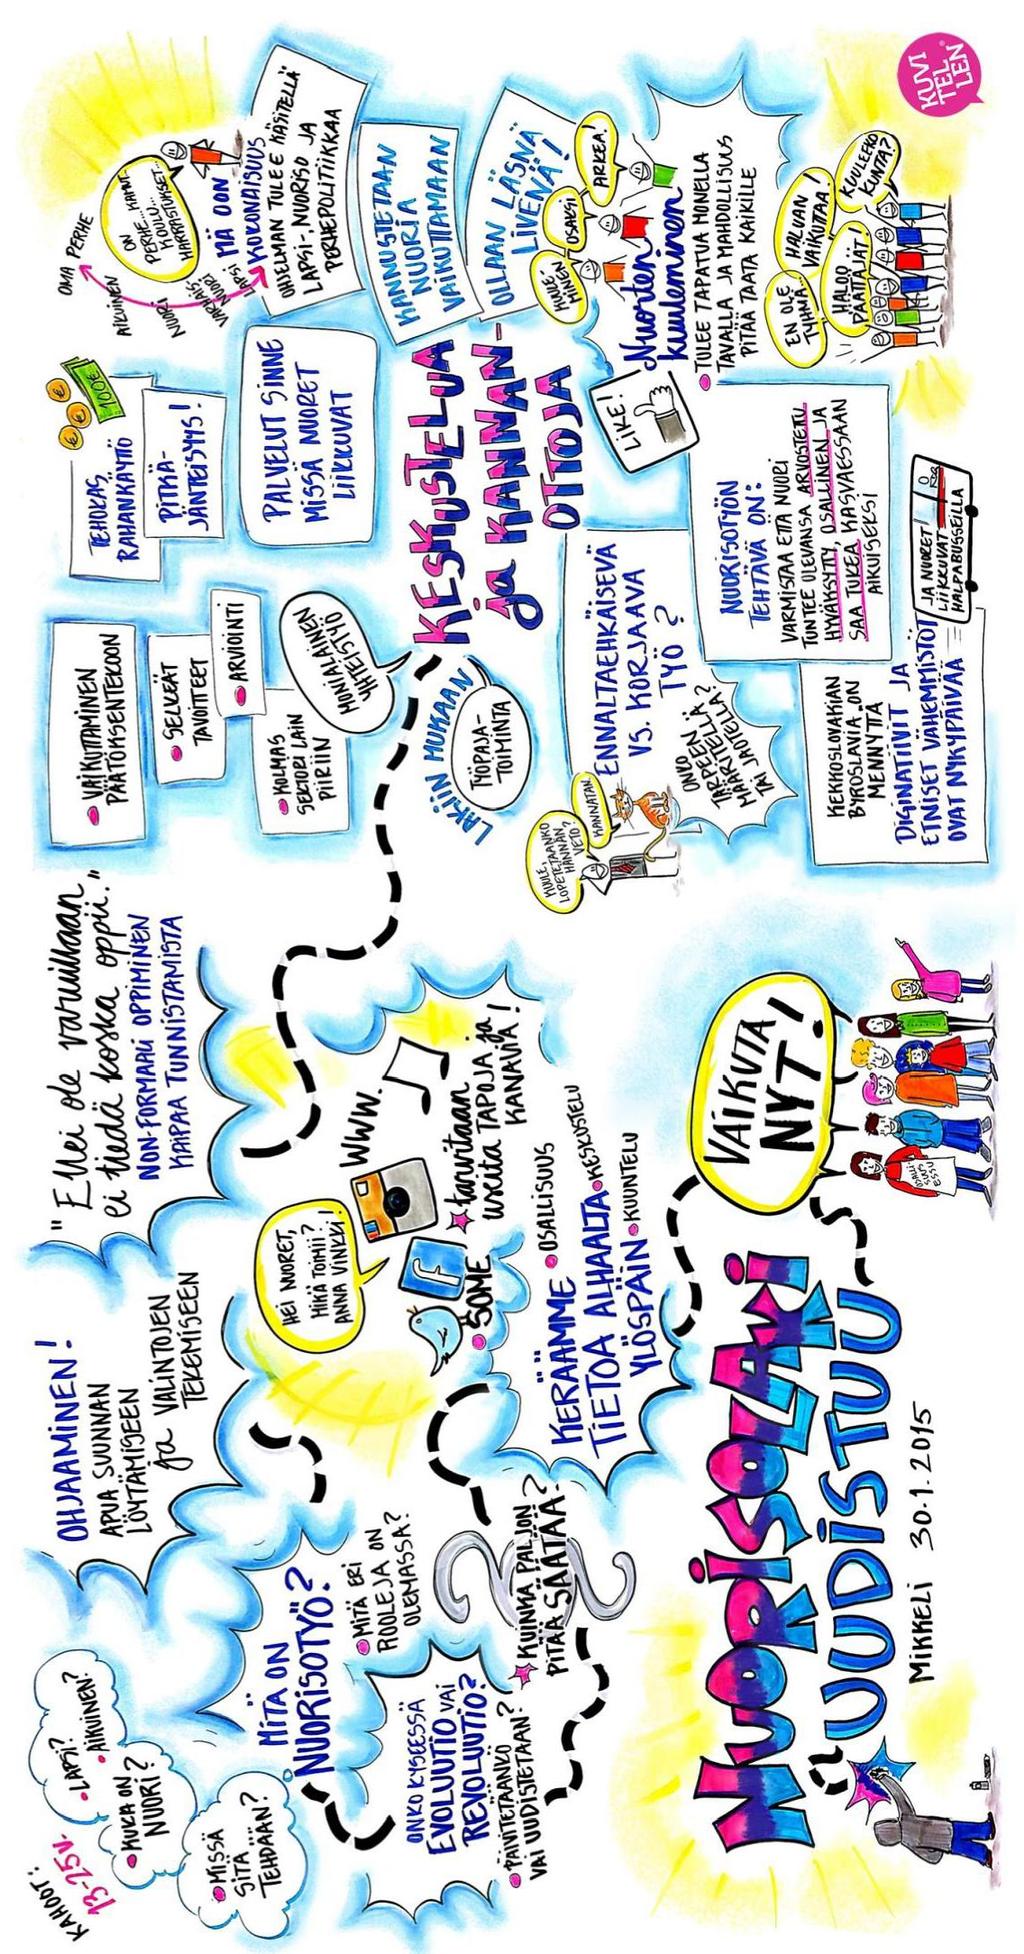 NUORISOLAKI
UUDISTUU
MIKKELI 30.1.2015
VAIKUTA
NYT!
OSALLI
SUUS
ESSU
KAHOOT:
13-25v.
LAPSI?
AIKUINEN?
KUKA ON
NUORI?
MISSÄ
SITÄ
TEHDÄÄN?
MITÄ ON
NUORISOTYÖ?
MITÄ ERI
ROOLEJA ON
OLEMASSA?
ONKO KYSEESSÄ
EVOLUUTIO VAI
REVOLUUTIO?
PÄIVITETÄÄNKÖ
VAI UUDISTETAAN?
KUINKA PALJON
PITÄÄ SÄÄTÄÄ?
OHJAAMINEN!
APUA SUUNNAN
LÖYTÄMISEEN
ja VALINTOJEN
TEKEMISEEN
"Ellei ole varuillaan
ei tiedä koska oppii."
NON-FORMAALI OPPIMINEN
KAIPAA TUNNISTAMISTA
HEI NUORET,
MIKÄ TOIMII?
ANNA VINKKI!
WWW.
f
SOME
tarvitaan
useita TAPOJA ja
KANAVIA!
KERÄÄMME
TIETOA ALHAALTA
YLÖSPÄIN
OSALLISUUS
KESKUSTELU
KUUNTELU
VAIKUTTAMINEN
PÄÄTÖKSENTEKOON
SELKEÄT
TAVOITTEET
ARVIOINTI
KOLMAS
SEKTORI LAIN
PIIRIIN
MONIALAINEN
YHTEISTYÖ
LAKIIN MUKAAN
TYÖPAJA-
TOIMINTA
KESKUSTELUA
ja KANNAN-
OTTOJA
TEHOKAS
RAHANKÄYTTÖ
100€
€
€
€
PITKÄ-
JÄNTEISYYS!
PALVELUT SINNE
MISSÄ NUORET
LIIKKUVAT
OMA PERHE
AIKUINEN
NUORI
VARHAIS
NUORI
LAPSI
ON
PERHE, KAHUT..
KOULU...
HARRASTUKSET...
MÄ OON
KOKONAISUUS
OHJELMAN TULEE KÄSITELLÄ
LAPSI-, NUORISO JA
PERHEPOLITIIKKAA
KANNUSTETAAN
NUORIA
VAIKUTTAMAAN
OLLAAN LÄSNÄ
LIVENÄ!
KUULE-
MINEN
OSAKSI
ARKEA!
Nuorten
kuuleminen
TULEE TAPATUA MONELLA
TAVALLA JA MAHDOLLISUUS
PITÄÄ TATA KAIKILLE
EN OLE
TYHMÄ..
HALUAN
VAIKUTTAA!
HALOO
PÄÄTTÄJÄT
KUULEEKO
KUNTA?
LIKE!
ENNALTAEHKÄISEVÄ
VS. KORJAAVA
TYÖ?
ONKO
TARPEEN
TARPELLÄ
MÄÄRITELLÄ
TAI JAOTELLA?
KUULE,
LOPETETAANKO
HÄNNÄN
VETO?
KANNATAN.
NUORISOTYÖN
TEHTÄVÄ ON:
VARMISTAA ETTÄ NUORI
TUNTEE OLEVANSA ARVOSTETTU
HYVÄKSYTTY, OSALLINEN JA
SAA TUKEA KASVAESSAAN
AIKUISEKSI
KEKKOSLOVAKIAN
BYROSLAVIA ON
MENNYTTÄ
DIGINATIIVIT JA
ETNISET VÄHEMMISTÖT
OVAT NYKYPÄIVÄÄ
JA NUORET
LIIKKUVAT
HALPABUSSEILLA
KUVI
TEL
LEN